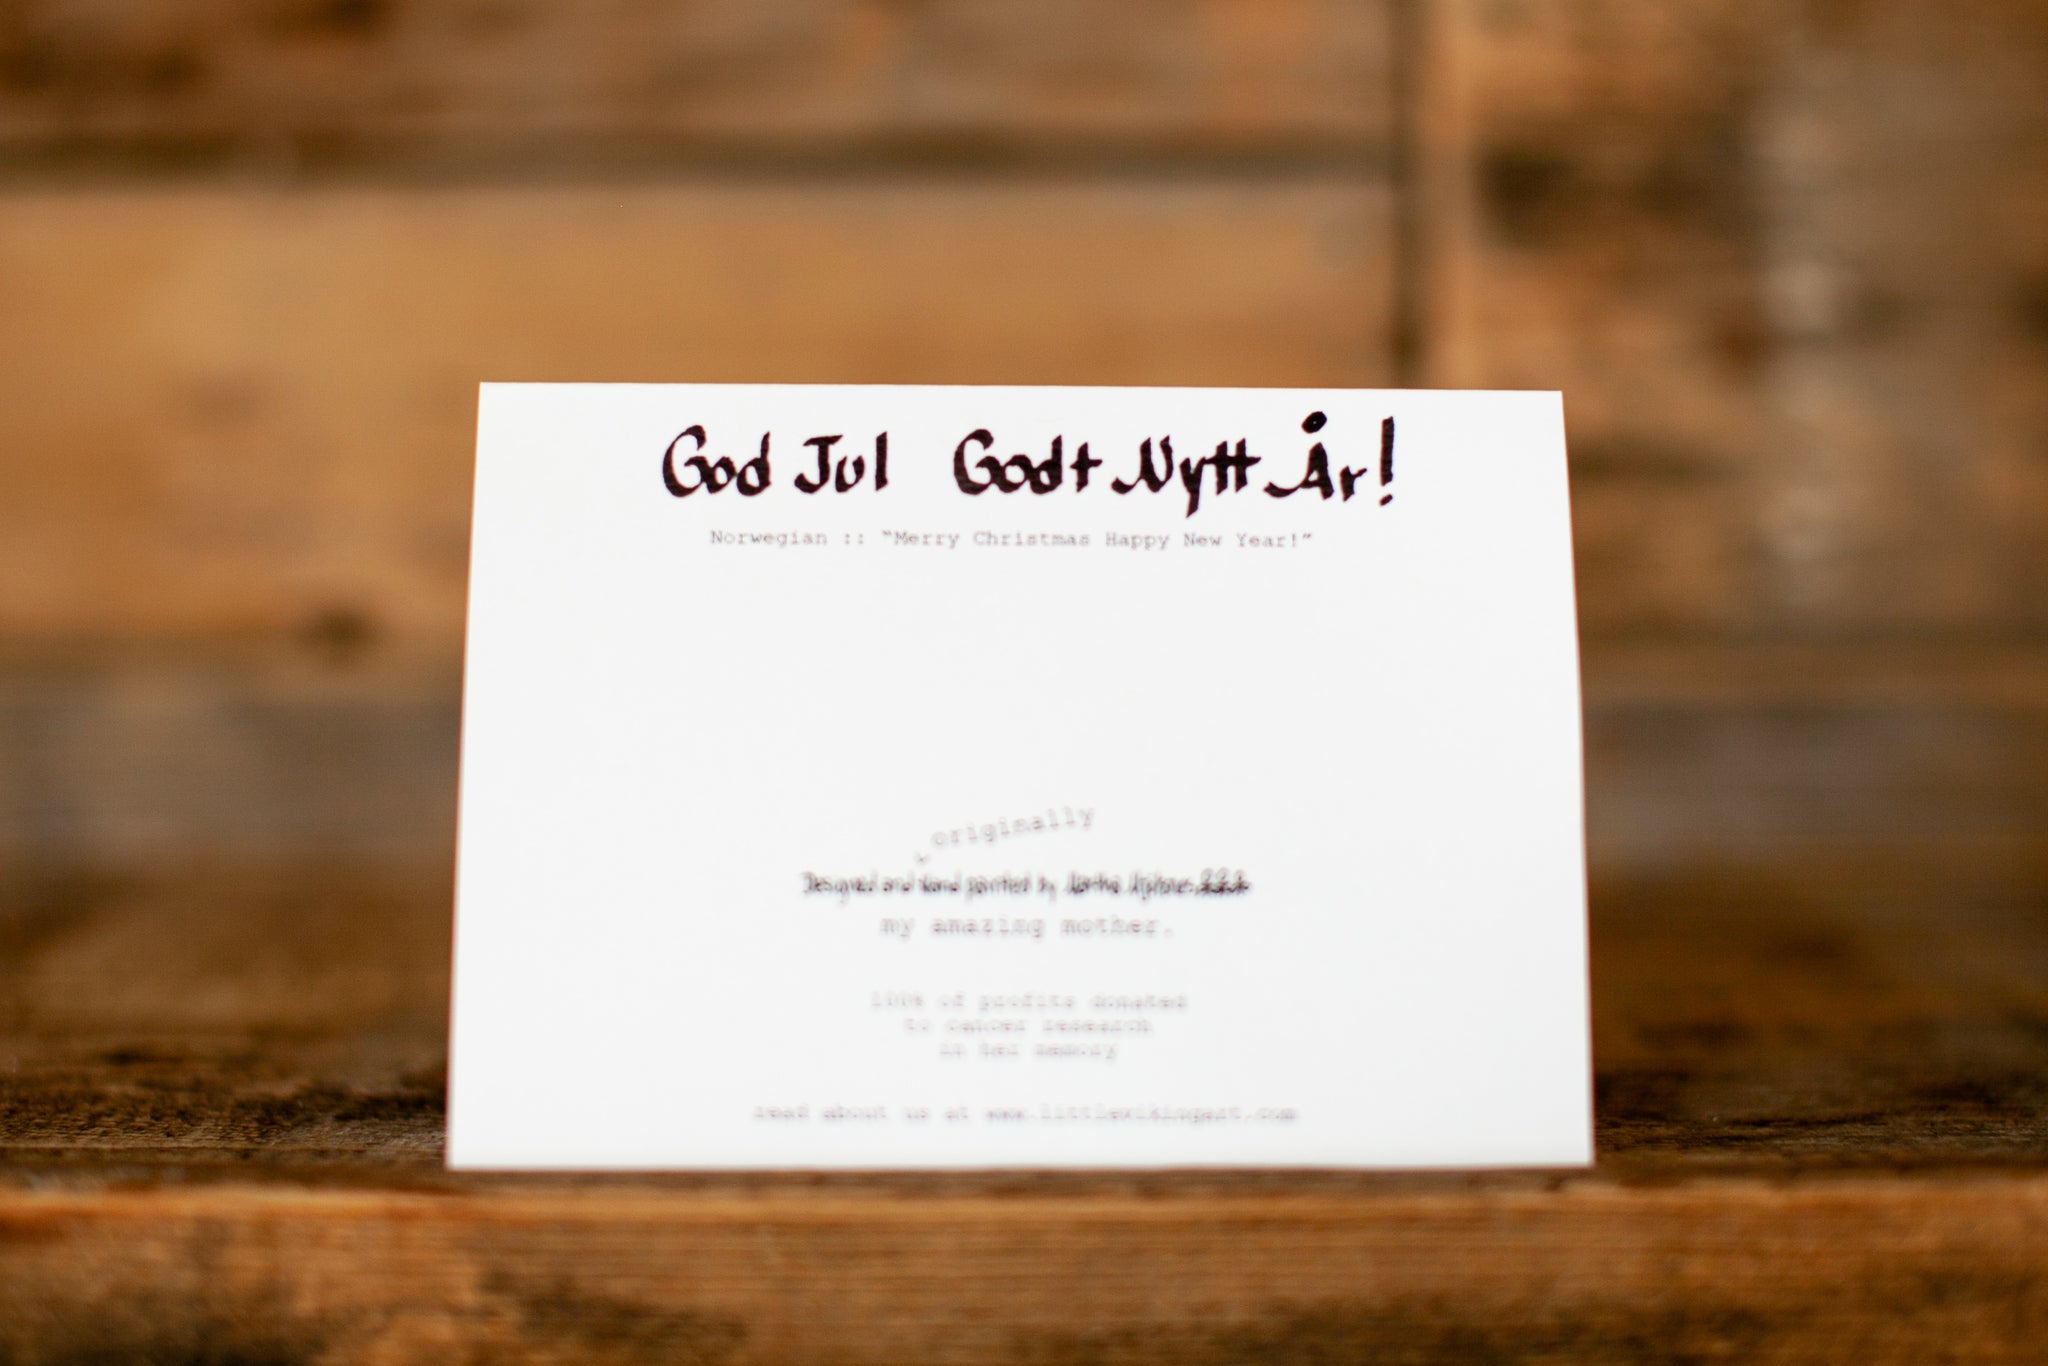 God Jul Godt Nytt År!
Norwegian :: “Merry Christmas Happy New Year!”
originally
my amazing mother.
100% of profits donated
to cancer research
in her memory
read about us at www.littlevikingart.com